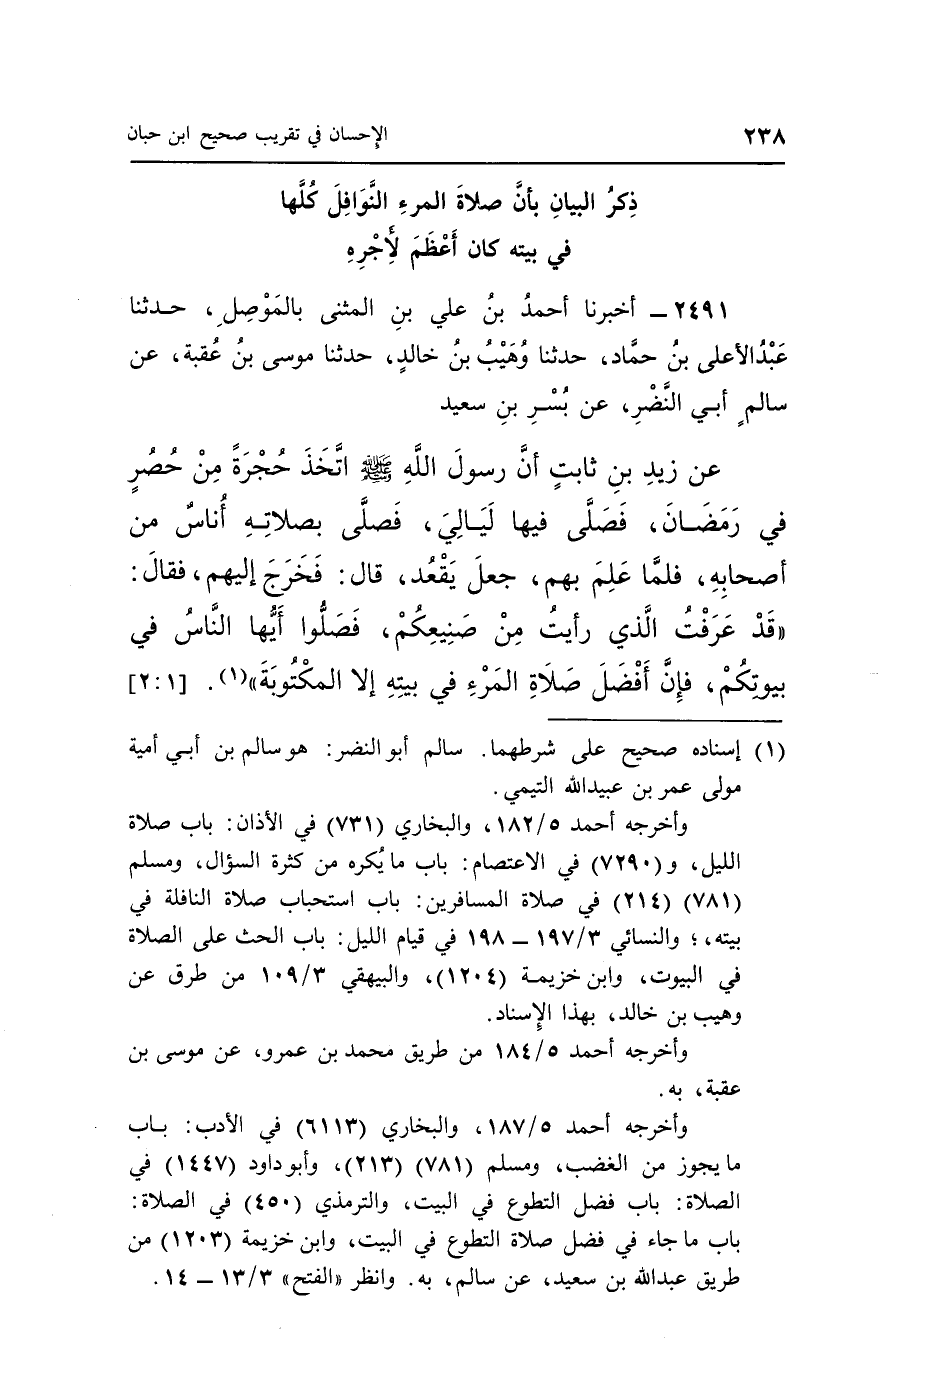 ٢٣٨ الإحسان في تقريب صحيح ابن حبان
ذِكرُ البيانِ بأنَّ صلاةَ المرءِ النَّوَافِلَ كُلَّها
في بيته كان أَعْظَمَ لأَجْرِهِ
٢٤٩١ ــ أخبرنا أحمدُ بنُ علي بنِ المثنى بالمَوْصِلِ، حدثنا
عَبْدُالأعلى بنُ حمَّاد، حدثنا وُهَيْبُ بنُ خالدٍ، حدثنا موسى بنُ عُقبة، عن
سالمٍ أبي النَّضْرِ، عن بُسْرِ بنِ سعيد
عن زيدِ بنِ ثابتٍ أنَّ رسولَ اللَّهِ ﷺ اتَّخَذَ حُجْرَةً مِنْ حُصُرٍ
في رَمَضَانَ، فَصَلَّى فيها لَيَالِيَ، فَصلَّى بصلاتِهِ أُناسٌ من
أصحابِهِ، فلمَّا عَلِمَ بهم، جعلَ يَقْعُد، قال: فَخَرَجَ إليهم، فقالَ:
«قَدْ عَرَفْتُ الَّذي رأيتُ مِنْ صَنِيعِكُمْ، فَصَلُّوا أَيُّها النَّاسُ في
بيوتِكُمْ، فإنَّ أَفْضَلَ صَلَاةِ المَرْءِ في بيتِهِ إلا المكْتُوبَةَ»(١). [٢:١]
(١) إسناده صحيح على شرطهما. سالم أبو النضر: هو سالم بن أبي أمية
مولى عمر بن عبيدالله التيمي.
وأخرجه أحمد ١٨٢/٥، والبخاري (٧٣١) في الأذان: باب صلاة
الليل، و(٧٢٩٠) في الاعتصام: باب ما يُكره من كثرة السؤال، ومسلم
(٧٨١) (٢١٤) في صلاة المسافرين: باب استحباب صلاة النافلة في
بيته،؛ والنسائي ١٩٧/٣ ــ ١٩٨ في قيام الليل: باب الحث على الصلاة
في البيوت، وابن خزيمة (١٢٠٤)، والبيهقي ١٠٩/٣ من طرق عن
وهيب بن خالد، بهذا الإسناد.
وأخرجه أحمد ١٨٤/٥ من طريق محمد بن عمرو، عن موسى بن
عقبة، به.
وأخرجه أحمد ١٨٧/٥، والبخاري (٦١١٣) في الأدب: باب
ما يجوز من الغضب، ومسلم (٧٨١) (٢١٣)، وأبو داود (١٤٤٧) في
الصلاة: باب فضل التطوع في البيت، والترمذي (٤٥٠) في الصلاة:
باب ما جاء في فضل صلاة التطوع في البيت، وابن خزيمة (١٢٠٣) من
طريق عبدالله بن سعيد، عن سالم، به. وانظر «الفتح» ١٣/٣ ــ ١٤.